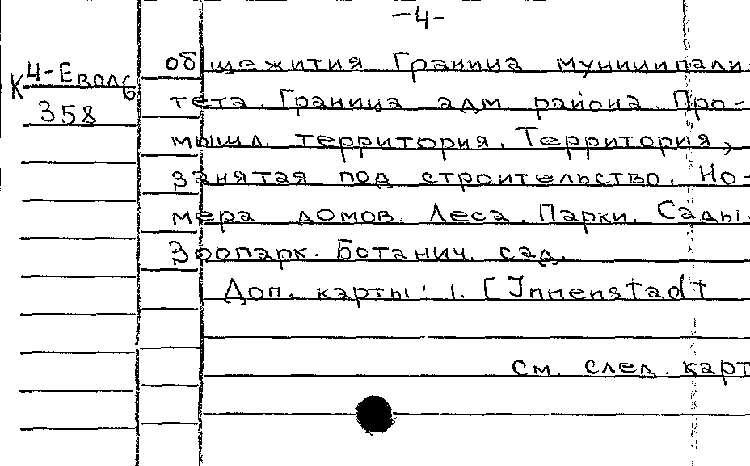 -4-
К 4-Еволб
358
общежития Граница муниципали-
тета. Граница адм. района. Про-
мышл. территория. Территория,
занятая под строительство. Но-
мера домов. Леса. Парки. Сады.
Зоопарк. Ботанич. сад.
Доп. карты: 1. [Innenstadt
см. след. карт